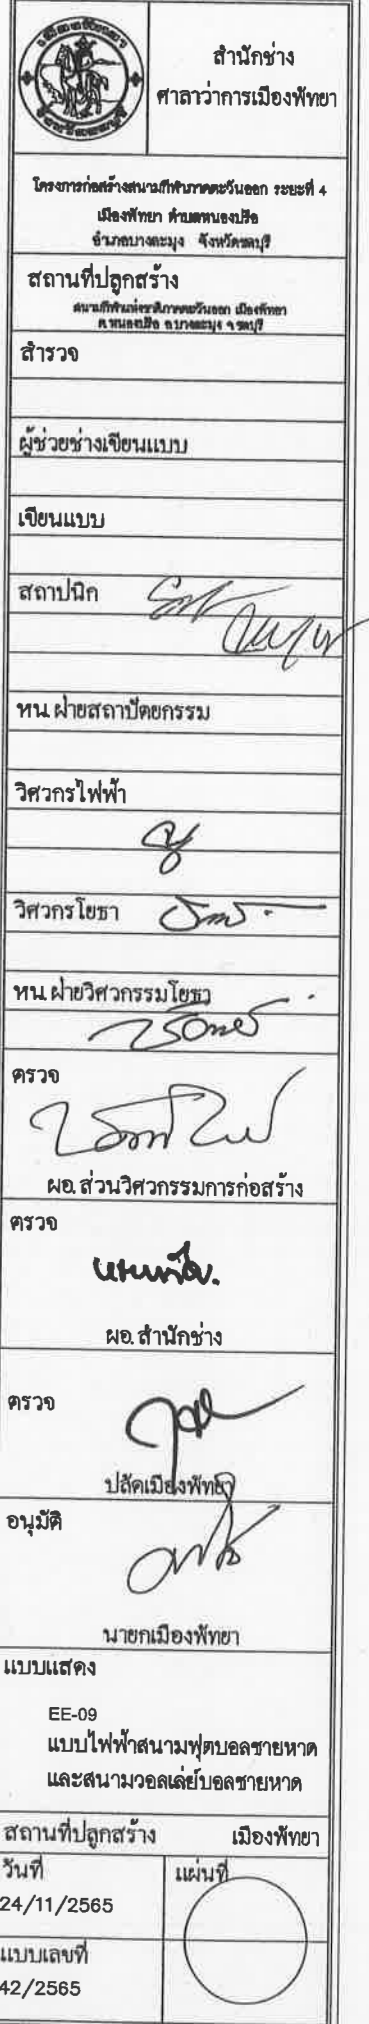 สำนักช่าง
ศาลาว่าการเมืองพัทยา
โครงการก่อสร้างสนามกีฬาภาคตะวันออก ระยะที่ 4
เมืองพัทยา ตำบลหนองปรือ
อำเภอบางละมุง จังหวัดชลบุรี
สถานที่ปลูกสร้าง
สนามกีฬาแห่งชาติภาคตะวันออก เมืองพัทยา
ต.หนองปรือ อ.บางละมุง จ.ชลบุรี
สำรวจ
ผู้ช่วยช่างเขียนแบบ
เขียนแบบ
สถาปนิก
หน.ฝ่ายสถาปัตยกรรม
วิศวกรไฟฟ้า
วิศวกรโยธา
หน.ฝ่ายวิศวกรรมโยธา
ตรวจ
ผอ.ส่วนวิศวกรรมการก่อสร้าง
ตรวจ
ผอ.สำนักช่าง
ตรวจ
ปลัดเมืองพัทยา
อนุมัติ
นายกเมืองพัทยา
แบบแสดง
EE-09
แบบไฟฟ้าสนามฟุตบอลชายหาด
และสนามวอลเล่ย์บอลชายหาด
สถานที่ปลูกสร้าง เมืองพัทยา
วันที่ แผ่นที่
24/11/2565
แบบเลขที่
42/2565